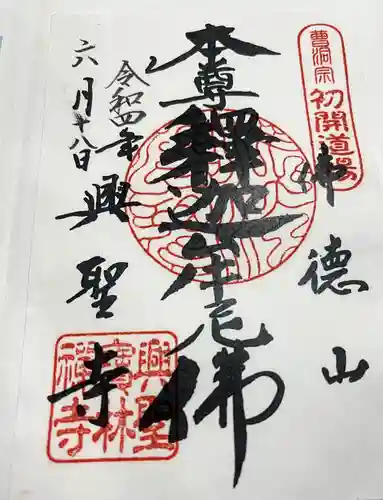 曹洞宗
初開道場
佛德山
本尊
釋迦牟尼佛
令和四年
六月十八日
興聖寺
興聖
寶林
禅寺